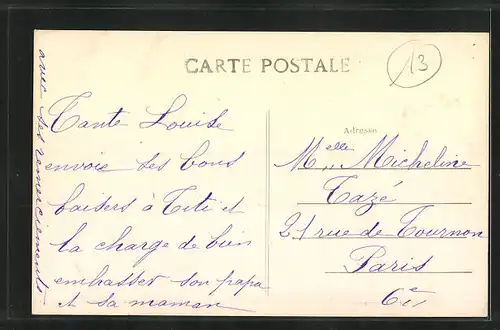 CARTE POSTALE
13
Tante Louise
envoie ses bons
baisers à Titi et
la charge de bien
embrasser son papa
et sa maman
avec ses remerciements
Adresse
Melle Micheline
Tazé
21 rue de Tournon
Paris
6e